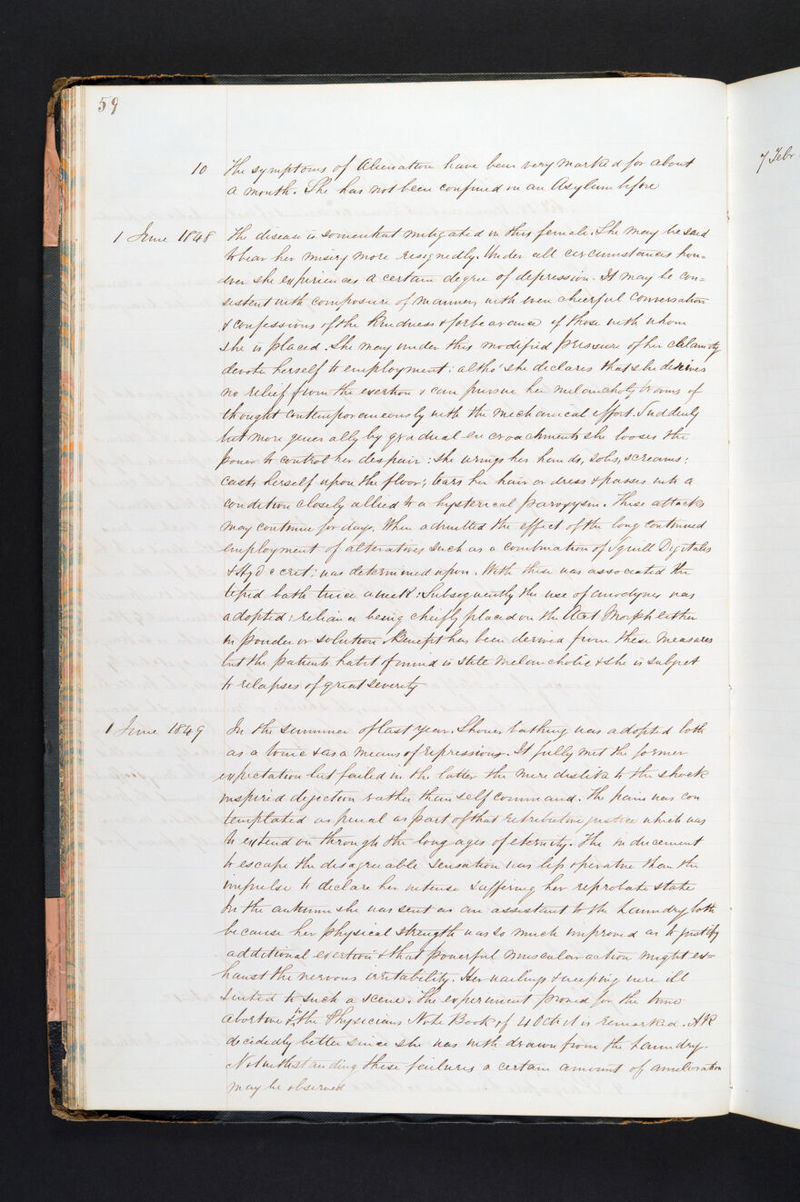 59
7 Febr
10 The symptoms of Alienation have been very marked for about
a month. She has not been confined in an Asylum before
1 June 1848 The disease is somewhat mitigated in this female. She may be said
to bear her misery more resignedly. Under all circumstances how=
ever she experiences a certain degree of depression. It may be con=
sistent with composure of manner, with even cheerful conversation
& confessions of the kindness & forbearance of those with whom
she is placed. She may under this modified pressure of her calamity
devote herself to employment: altho' she declares that she derives
no relief from the exertion & can pursue her melancholy trains of
thought contemporaneously with the mechanical effort. Suddenly
but more generally by gradual encroachments she looses the
power to control her despair: she wrings her hands, sobs, screams;
casts herself upon the floor; tears her hair or dress & passes into a
condition closely allied to a hysterical paroxysm. These attacks
may continue for days. When admitted the effect of the long continued
employment of alteratives such as a combination of Squill Digitalis
& Hyd c cret: was determined upon. With these was associated the
tepid bath twice a week: Subsequently the use of anodynes was
adopted: reliance being chiefly placed on the Acet Morph either
in powder or solution. Benefit has been derived from these measures
but the patients habit of mind is still melancholic & she is subject
to relapses of great severity
1 June 1849 In the summer of last year. Shower bathing was adopted both
as a tonic & as a means of repression. It fully met the former
expectation but failed in the latter the mere dislike to the shock
inspired dejection rather than self command. The pain was con
templated as penal as part of that retributive justice which was
to extend on through the long ages of eternity. The inducement
to escape the disagreeable sensation was less operative than the
impulse to declare her intense suffering her reprobate state
In the autumn she was sent as an assistant to the Laundry both
because her physical strength was so much improved as to justify
additional exertion & that powerful muscular action might ex=
haust the nervous irritability. Her wailings & weeping were ill
suited to such a scene. The experiment proved for the time
abortive & in the Physicians Note Book of 4 Oct it is remarked.
decidedly better since she was withdrawn from the Laundry.
Notwithstanding these failures a certain amount of amelioration
may be observed